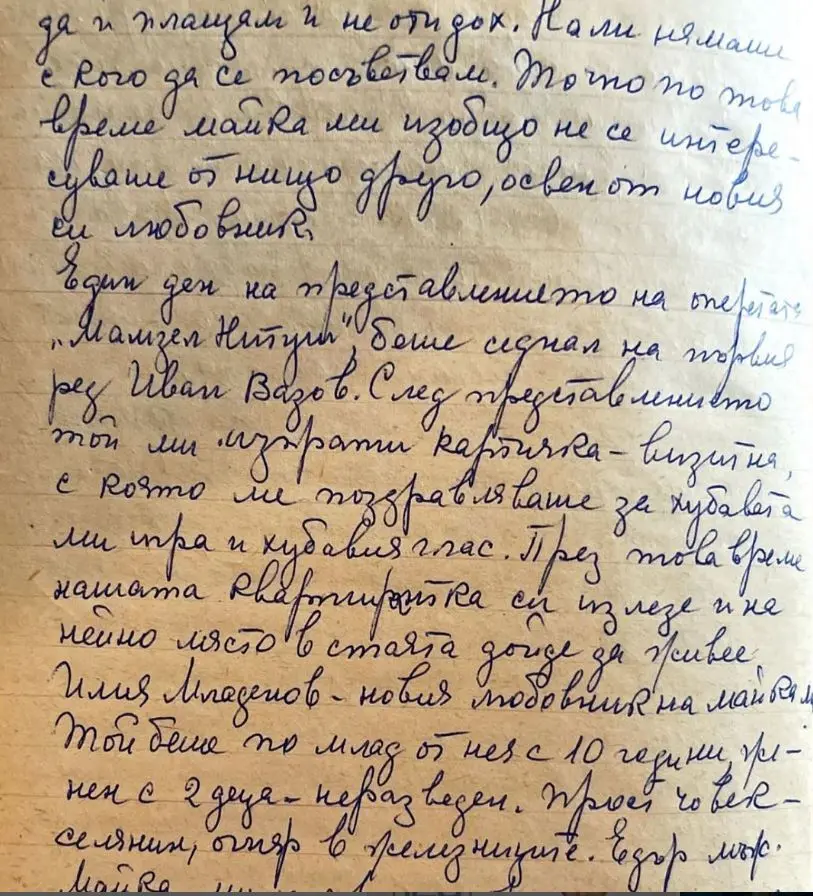 да и плащам и не отидох. Нали нямаше
с кого да се посъветвам. Точно по това
време майка ми изобщо не се интере-
суваше от нищо друго, освен от новия
си любовник.
Един ден на представлението на оперетата
„Мамзел Нитуш", беше седнал на първия
ред Иван Вазов. След представлението
той ми изпрати картичка - визитна,
с която ме поздравляваше за хубавата
ми игра и хубавия глас. През това време
нашата квартирантка си излезе и на
нейно място в стаята дойде да живее
Илия Младенов - новия любовник на майка ми
Той беше по млад от нея с 10 години, же-
нен с 2 деца - неразведен. Прост човек -
селянин, огняр в железниците. Едър мъж.
Майка